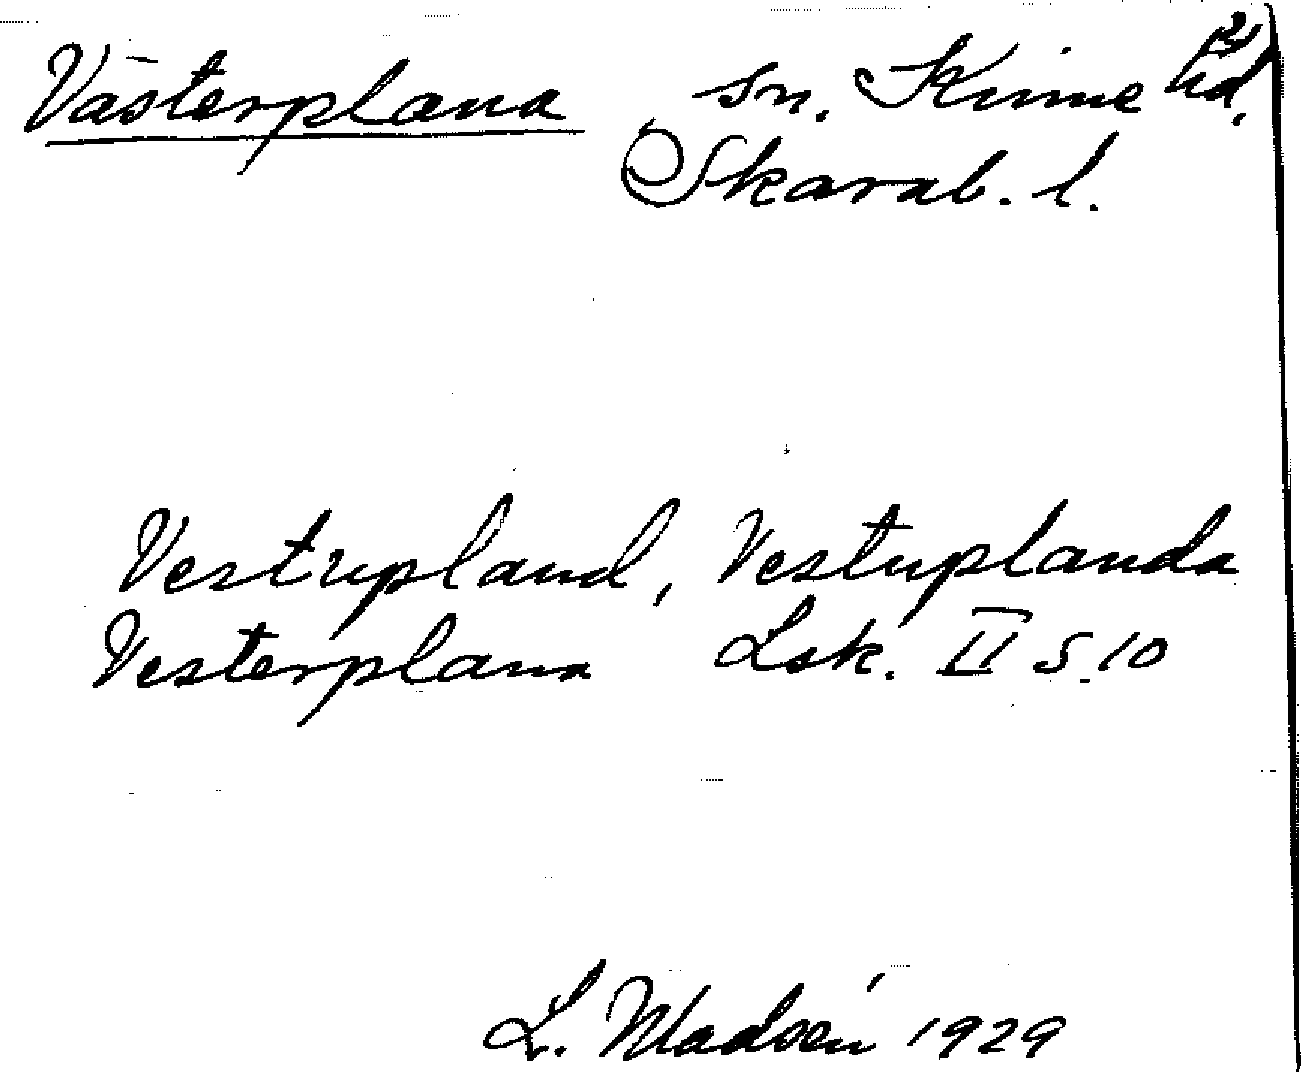 Västerplana sn. Kinne hd,
Skarab. l.
Vestrupland, Vestuplanda
Vesterplana Lsk. II S. 10
L. Madsén 1929